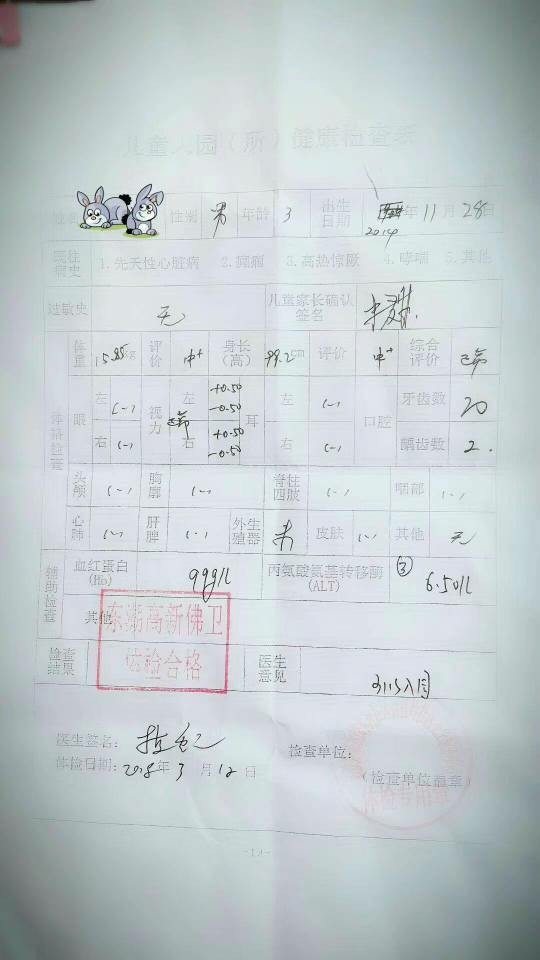 儿童入园（所）健康检查表
性别 男 年龄 3 出生日期 2014 年 11 月 28 日
既往病史 1.先天性心脏病 2.癫痫 3.高热惊厥 4.哮喘 5.其他
过敏史 无 儿童家长确认签名
体格检查
体重 15.85kg 评价 中+ 身长（高） 99.2cm 评价 中+ 综合评价
眼 左 (-) 视力 左 +0.50 -0.50 耳 左 (-) 口腔 牙齿数 20
右 (-) 右 +0.50 -0.50 右 (-) 龋齿数 2.
头颅 (-) 胸廓 (-) 脊柱四肢 (-) 咽部 (-)
心肺 (-) 肝脾 (-) 外生殖器 未 皮肤 (-) 其他 无
辅助检查
血红蛋白(Hb) 99g/L 丙氨酸氨基转移酶(ALT) 6.50/L
其他
检查结果 体检合格 医生意见
医生签名： 检查单位：
体检日期：2018年 3 月 12 日 (检查单位盖章)
体检专用章
-19-